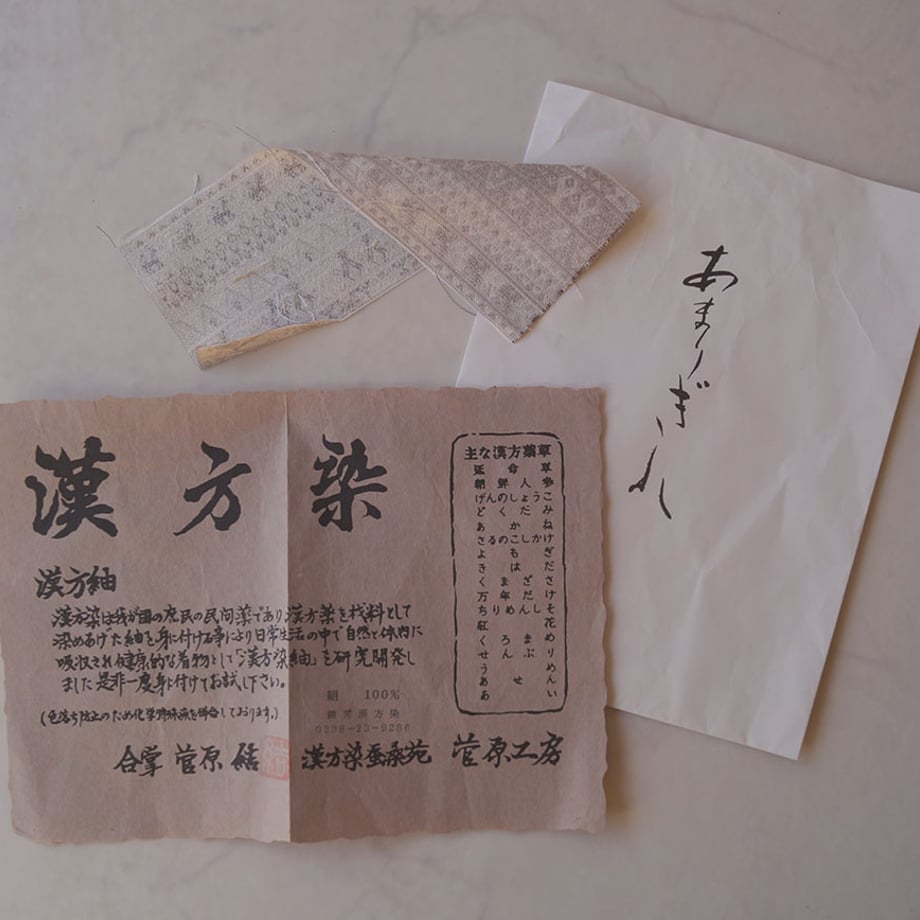 あまりぎれ
漢方染
漢方紬
漢方染は我が国の庶民の民間薬であり漢方薬を材料として
染めあげた紬を身に付ける事により日常生活の中で自然と体内に
吸収され健康的な着物として「漢方染紬」を研究開発し
ました是非一度身に付けてお試し下さい。
(色落ち防止のため化学特殊液を併合しております。)
絹 100%
漢方染
0238-23-9286
合掌 菅原 漢方染蚕桑苑 菅原工房
主な漢方薬草
延命草
朝鮮人参
げんのしょうこ
どくだみ
あかね
さるのこしかけ
よもぎ
きはだ
くまざさ
万年だけ
ちりめんしそ
紅花
くろまめ
せんぶり
うめ
ああせんい